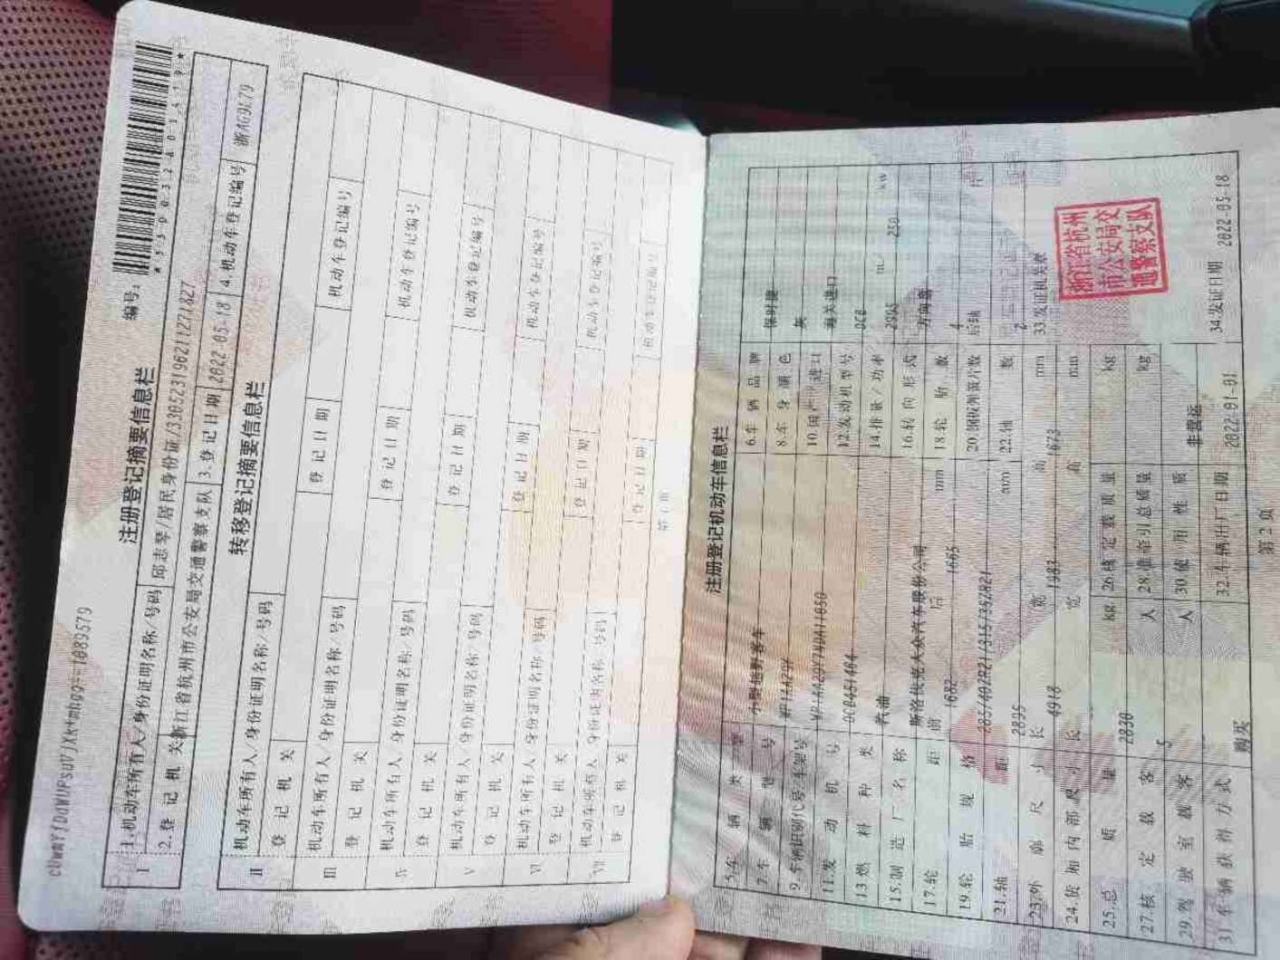 注册登记摘要信息栏
编号:
1.机动车所有人/身份证明名称/号码 邱志琴/居民身份证/330523196211271827
2.登记机关 浙江省杭州市公安局交通警察支队 3.登记日期 2022-05-18 4.机动车登记编号 浙AG9L79
转移登记摘要信息栏
Ⅱ 机动车所有人/身份证明名称/号码
登记机关 登记日期 机动车登记编号
Ⅲ 机动车所有人/身份证明名称/号码
登记机关 登记日期 机动车登记编号
Ⅳ 机动车所有人/身份证明名称/号码
登记机关 登记日期 机动车登记编号
Ⅴ 机动车所有人/身份证明名称/号码
登记机关 登记日期 机动车登记编号
Ⅵ 机动车所有人/身份证明名称/号码
登记机关 登记日期 机动车登记编号
Ⅶ 机动车所有人/身份证明名称/号码
登记机关 登记日期 机动车登记编号
第1页
注册登记机动车信息栏
5.车辆类型 小型越野客车 6.车辆品牌 保时捷
7.车辆型号 WP1AA29Y 8.车身颜色 灰
9.车辆识别代号/车架号 10.国产/进口 海关进口
11.发动机号 DCB451484 12.发动机型号 DCB
13.燃料种类 汽油 14.排量/功率 2995 ml/ 250 kw
15.制造厂名称 斯洛伐克大众汽车股份公司 16.转向形式 方向盘
17.轮距 前 1682 后 1665 mm 18.轮胎数 4
19.轮胎规格 285/40ZR21/315/35ZR21 20.钢板弹簧片数 后轴
21.轴距 2895 mm 22.轴数 2
23.外廓尺寸 长 4918 宽 1983 高 1673 mm 33.发证机关章
24.货厢内部尺寸 长 宽 高 mm
浙江省杭州
市公安局交
通警察支队
25.总质量 2830 kg 26.核定载质量 kg
27.核定载客 5 人 28.准牵引总质量 kg
29.驾驶室载客 人 30.使用性质 非营运
31.车辆获得方式 购买 32.车辆出厂日期 2022-01-01 34.发证日期 2022-05-18
第2页